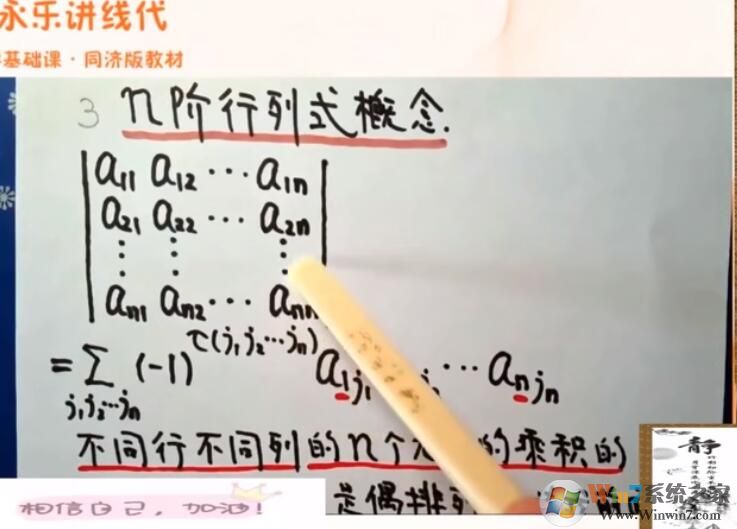 永乐讲线代
基础课·同济版教材
3 n阶行列式概念.
a₁₁ a₁₂ ⋯ a₁ₙ
a₂₁ a₂₂ ⋯ a₂ₙ
⋮ ⋮ ⋮
aₙ₁ aₙ₂ ⋯ aₙₙ
= Σ (-1) τ(j₁j₂⋯jₙ) a₁j₁ ⋯ aₙjₙ
j₁j₂⋯jₙ
不同行不同列的n个 的乘积的
是偶排
相信自己,加油!
静
Win7系统之家
Www.Winwin7.com